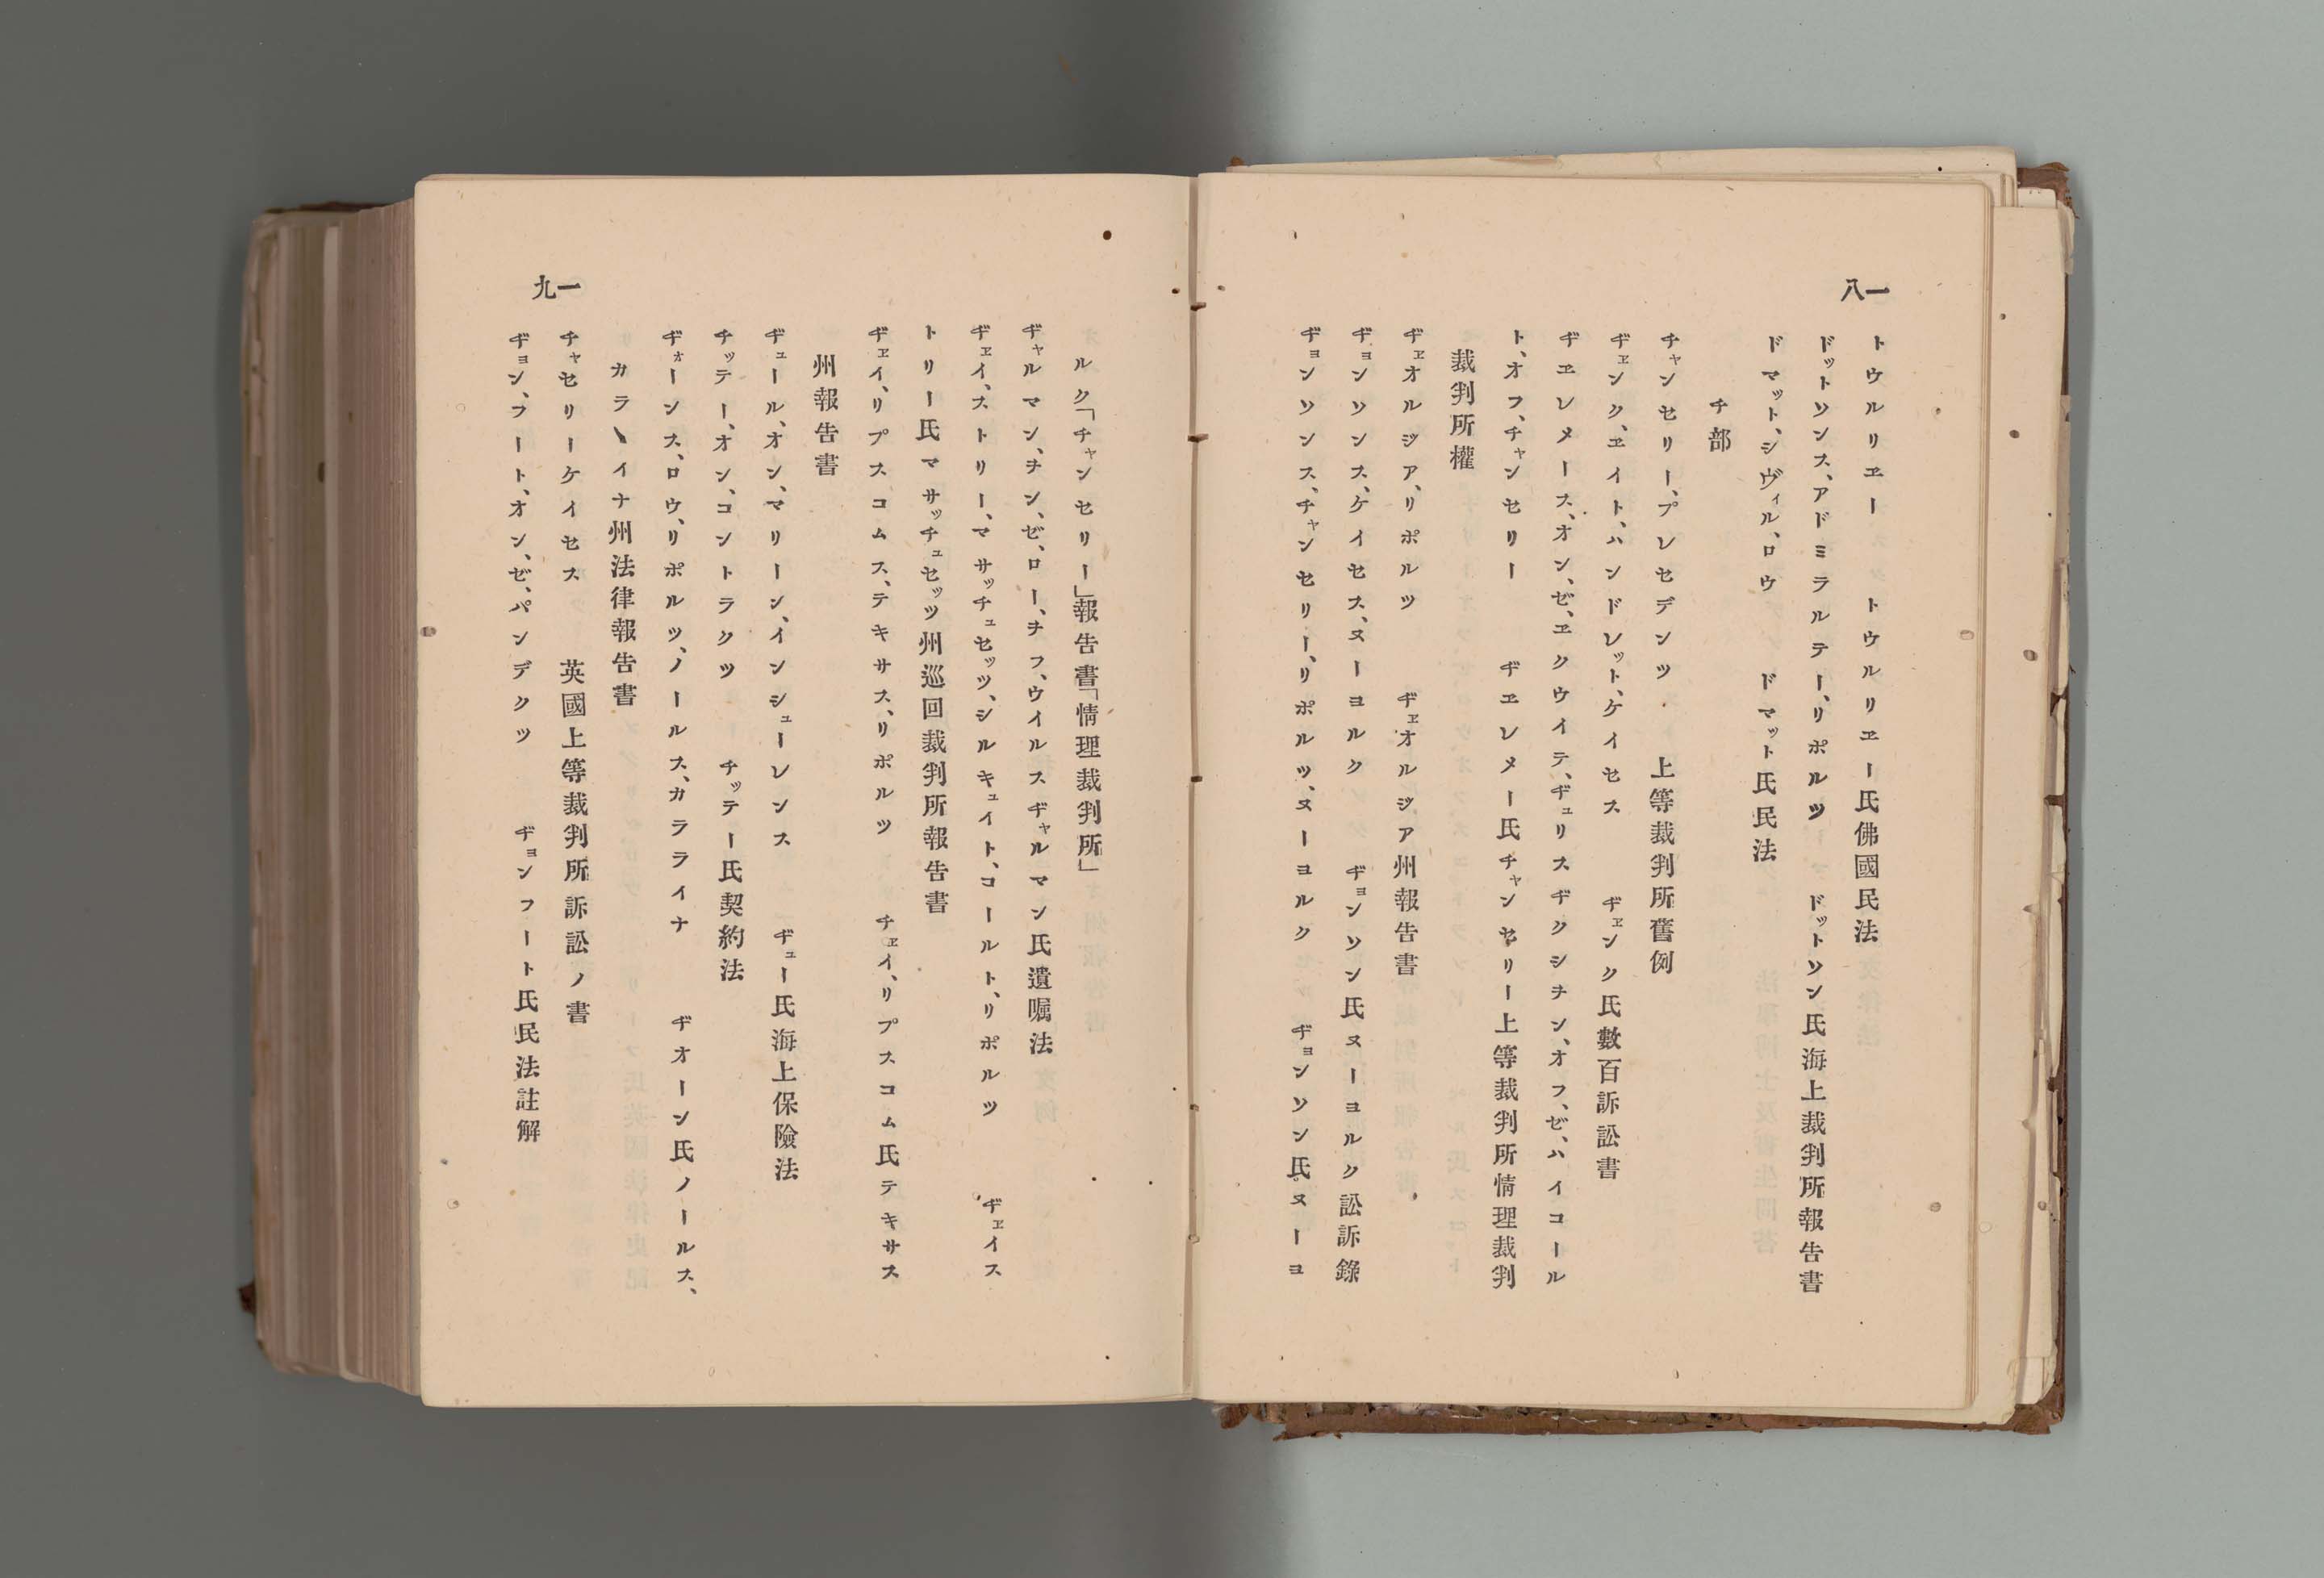 一八
トウルリヱー　トウルリヱー氏佛國民法
ドットソンス、アドミラルテー、リポルツ　ドットソン氏海上裁判所報告書
ドマット、シヴィル、ロウ　ドマット氏民法
チ部
チャンセリー、プレセデンツ　上等裁判所舊例
ヂェンク、ヱイト、ハンドレット、ケイセス　ヂェンク氏數百訴訟書
ヂヱレメース、オン、ゼ、ヱクウイテ、ヂュリスヂクシヲン、オフ、ゼ、ハイコール
ト、オフ、チャンセリー　ヂヱレメー氏チャンセリー上等裁判所情理裁判
裁判所權
ヂェオルジア、リポルツ　ヂェオルジア州報告書
ヂョンソンス、ケイセス、ヌーヨルク　ヂョンソン氏ヌーヨルク訟訴錄
ヂョンソンス、チャンセリー、リポルツ、ヌーヨルク　ヂョンソン氏ヌーヨ
一九
ルク「チャンセリー」報告書「情理裁判所」
ヂャルマン、ヲン、ゼ、ロー、ヲフ、ウイルス　ヂャルマン氏遺嘱法
ヂェイ、ストリー、マサッチュセッツ、シルキュイト、コールト、リポルツ　ヂェイス
トリー氏マサッチュセッツ州巡回裁判所報告書
ヂェイ、リプスコムス、テキサス、リポルツ　チェイ、リプスコム氏テキサス
州報告書
ヂュール、オン、マリーン、インシューレンス　ヂュー氏海上保險法
チッテー、オン、コントラクツ　チッテー氏契約法
ヂォーンス、ロウ、リポルツ、ノールス、カラライナ　ヂオーン氏ノールス、
カラヽイナ州法律報告書
チャセリーケイセス　英國上等裁判所訴訟ノ書
ヂョン、フート、オン、ゼ、パンデクツ　ヂョンフート氏民法註解